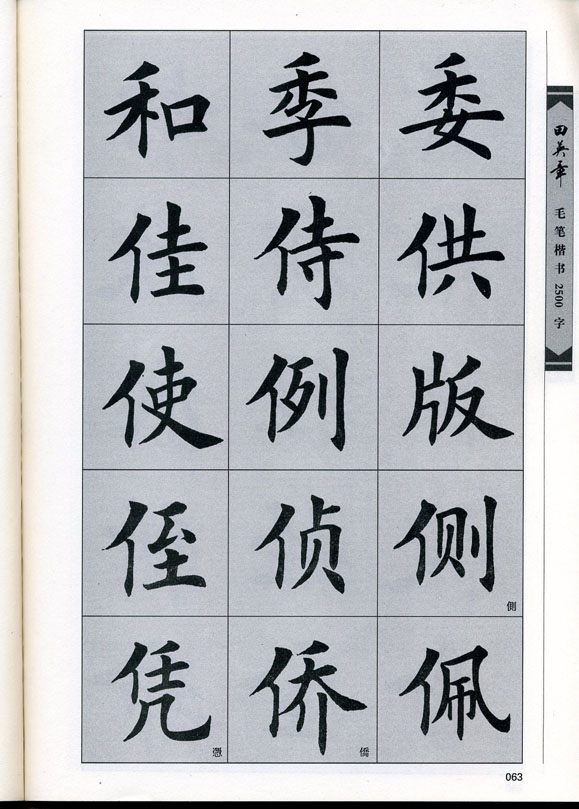 和季委
佳侍供
使例版
侄侦侧
側
凭侨佩
憑 僑
田英章
毛笔楷书2500字
063